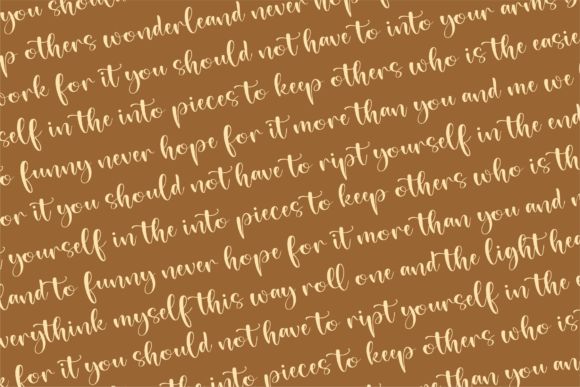 you should
p others wonderleand never hope
work for it you should not have to into your arms
self in the into pieces to keep others who is the easie
o funny never hope for it more than you and me we
or it you should not have to ript yourself in the end
yourself in the into pieces to keep others who is th
land to funny never hope for it more than you and m
verythink myself this way roll one and the light hea
for it you should not have to ript yourself in the
in the into pieces to keep others who is
for it more than you an